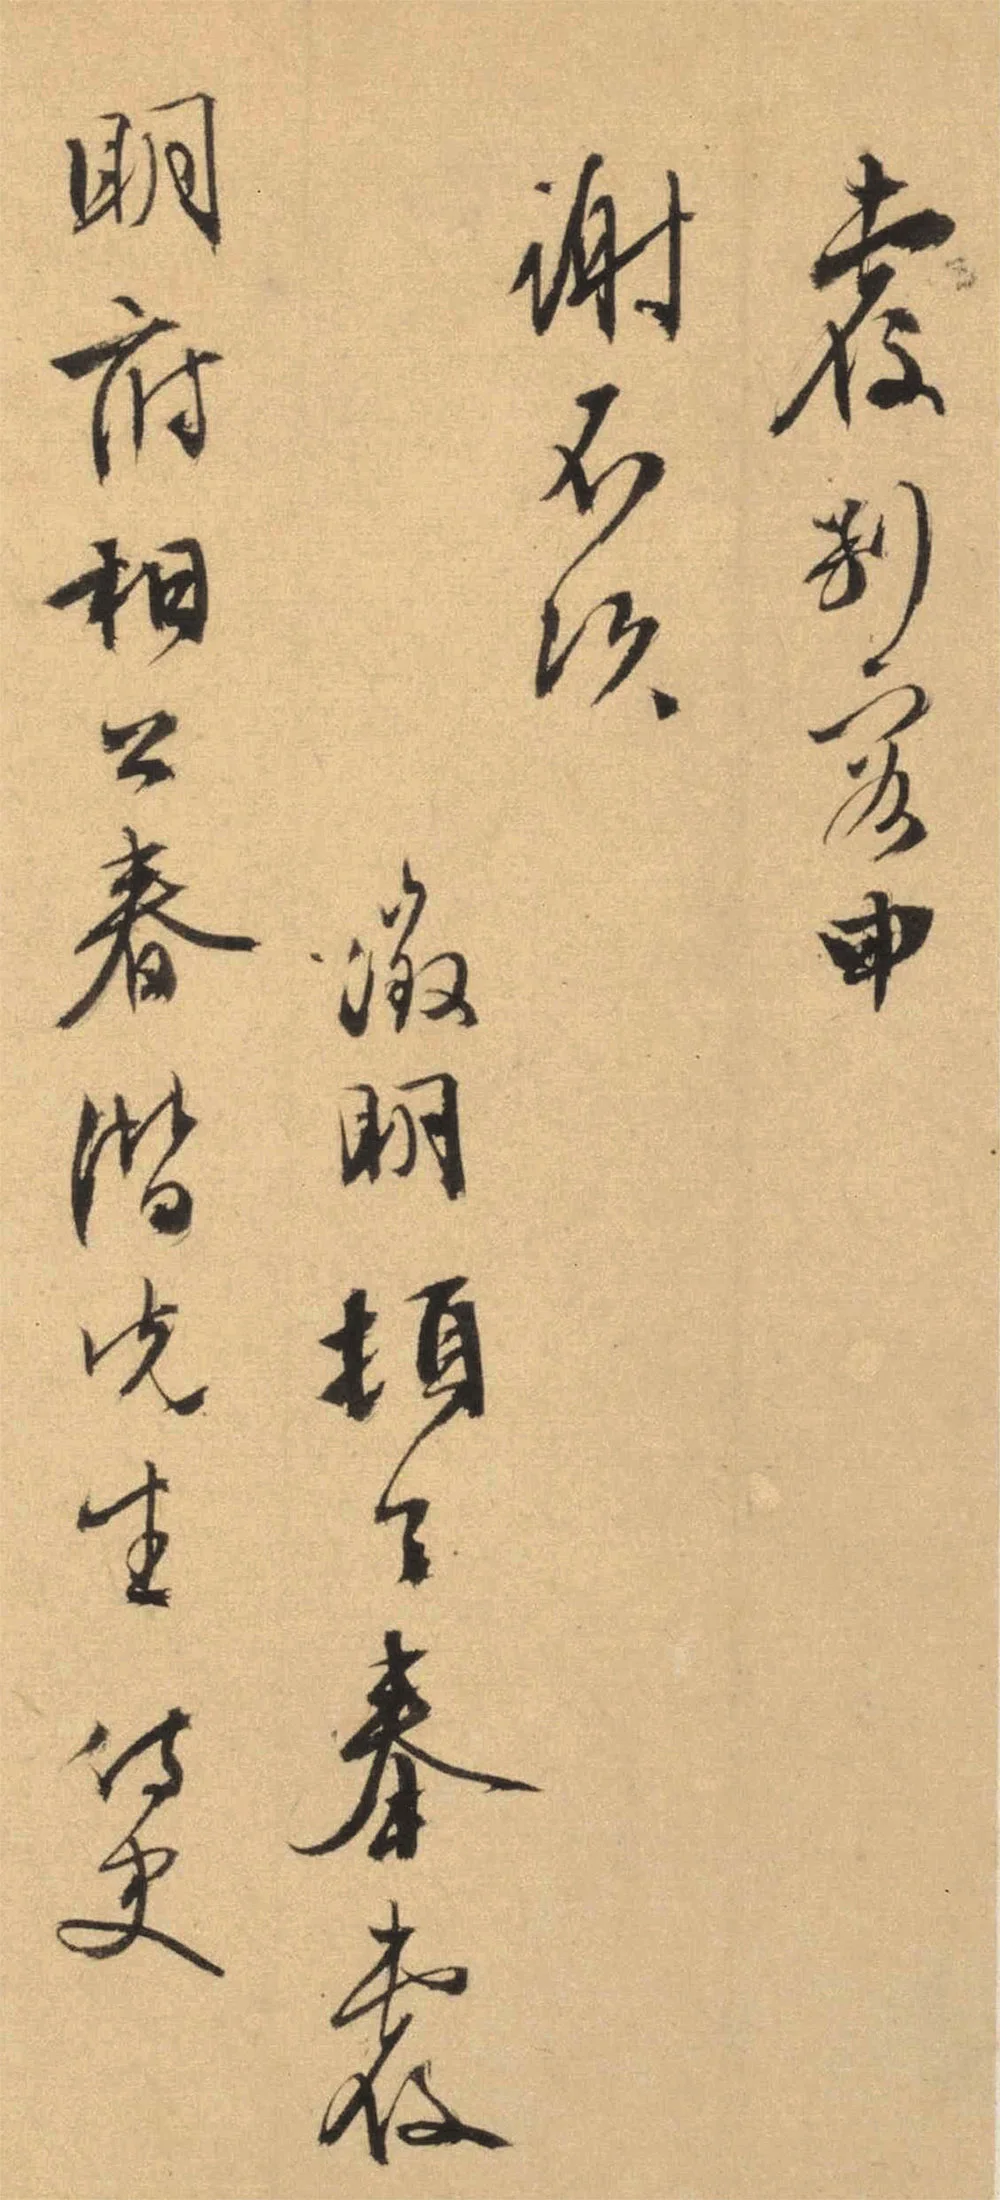 覆别容申
謝不次
徵明頓首奉覆
明府相公春潛先生侍史